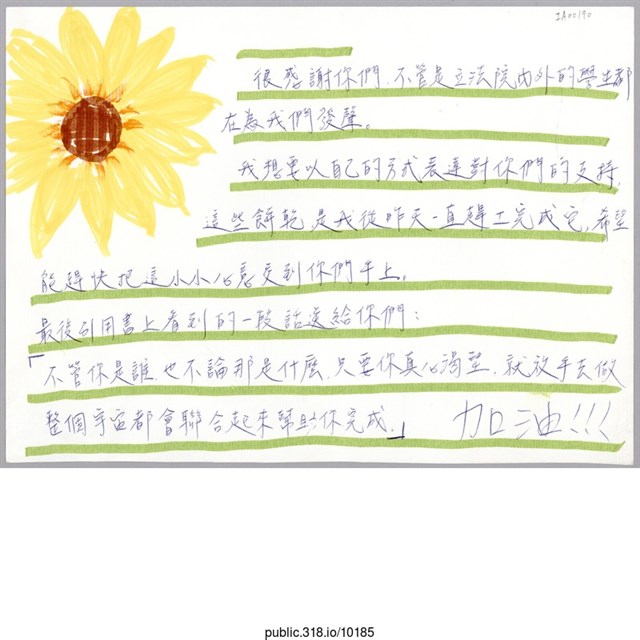 IA00190
很感謝你們,不管是立法院內外的學生都
在為我們發聲。
我想要以自己的方式表達對你們的支持,
這些餅乾是我從昨天一直趕工完成它,希望
能趕快把這小小心意交到你們手上。
最後引用書上看到的一段話送給你們:
「不管你是誰,也不論那是什麼,只要你真心渴望,就放手去做
整個宇宙都會聯合起來幫助你完成。」 加油!!!
public.318.io/10185